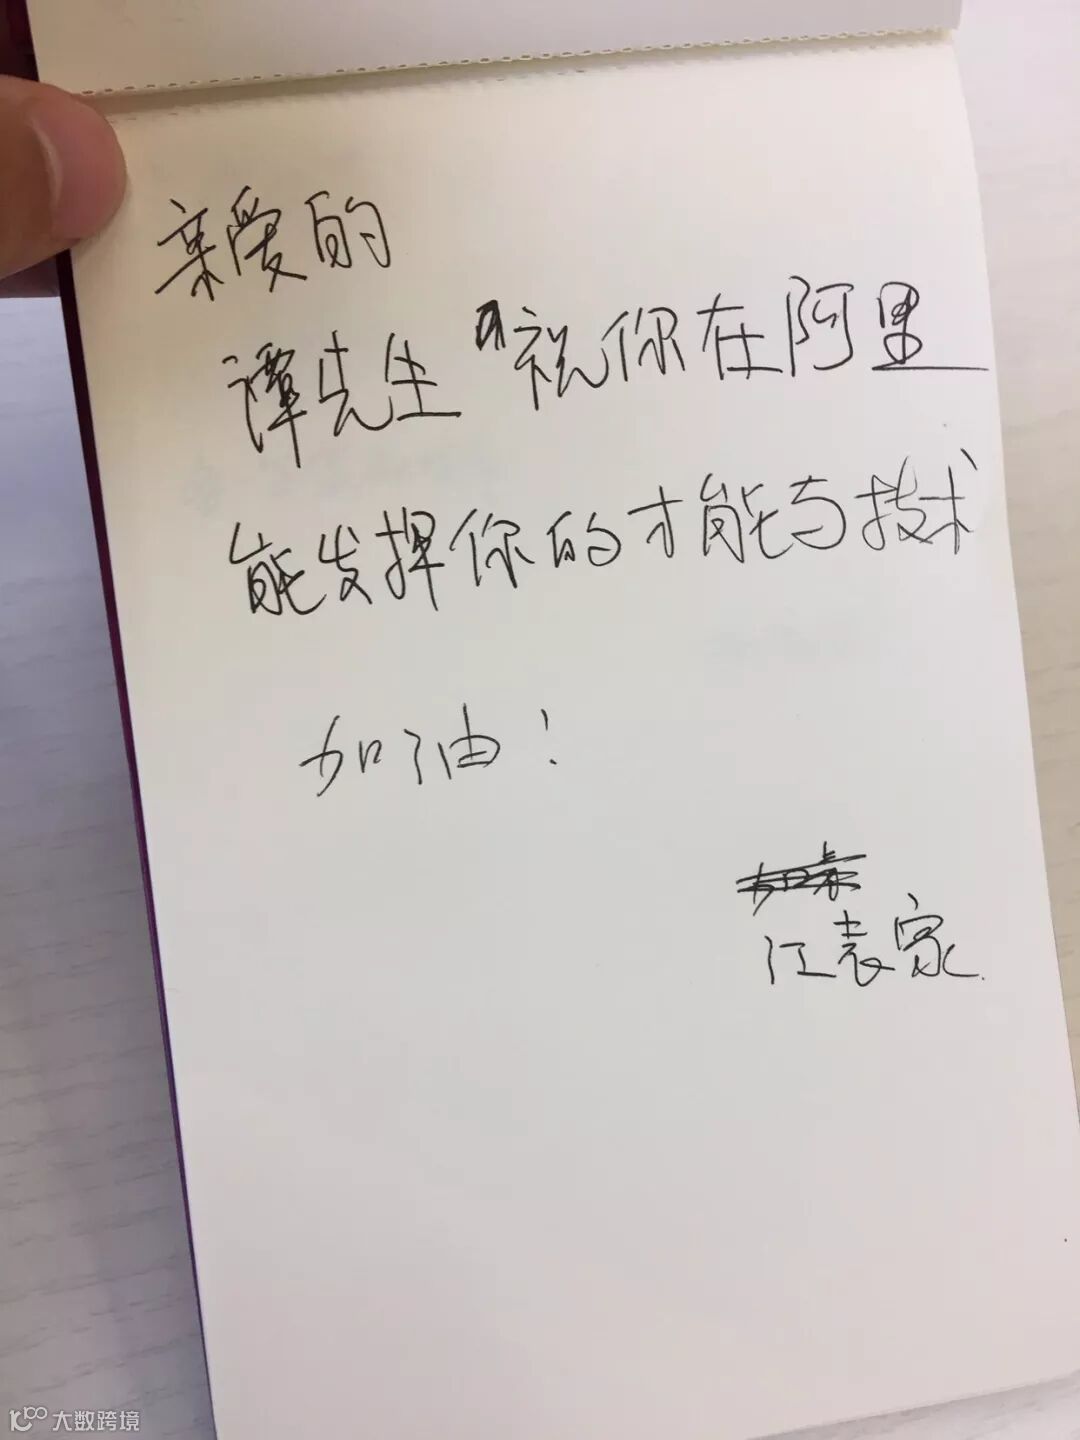 亲爱的
谭先生 祝你在阿里
能发挥你的才能与技术
加油！
江袁家
大数跨境